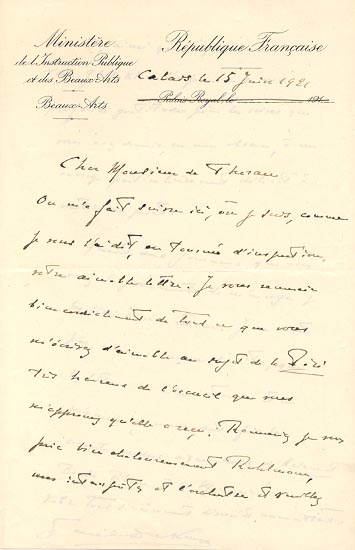 Ministère
de l'Instruction Publique
et des Beaux-Arts
Beaux-Arts
République Française
Calais le 15 Juin 192
Palais Royal, le 191
Cher Monsieur de Theran
On m'a fait suivre ici, où je suis, comme
je vous l'ai dit, en tournée d'inspection,
votre aimable lettre. Je vous remercie
bien cordialement de tout ce que vous
m'écrivez d'aimable au sujet de la Péri
très heureux de l'accueil que vous
m'apprenez qu'elle a reçu. Remerciez je vous
prie bien chaleureusement
vos interprètes et l'orchestre et veuillez